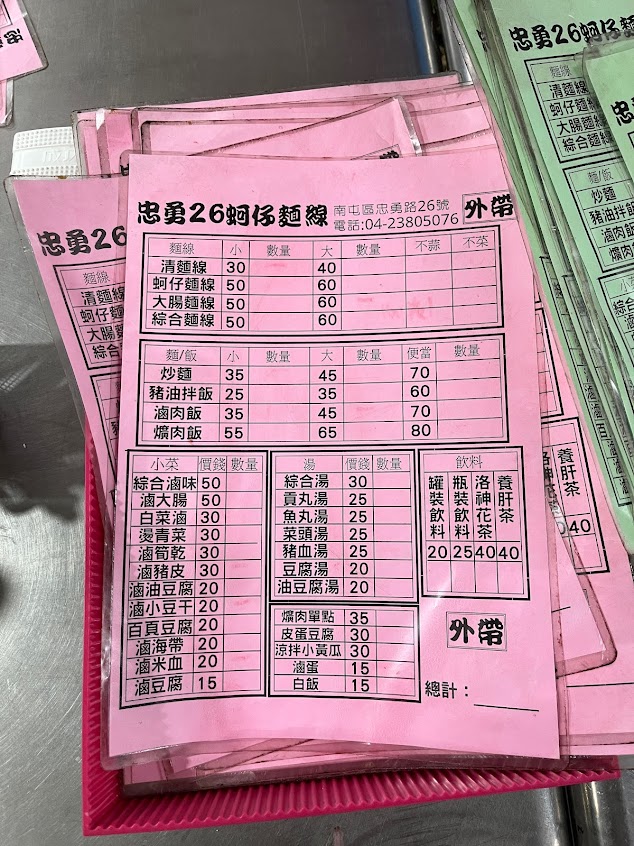 忠勇26蚵仔麵線 南屯區忠勇路26號 外帶
電話:04-23805076
麵線 小 數量 大 數量 不蒜 不菜
清麵線 30 40
蚵仔麵線 50 60
大腸麵線 50 60
綜合麵線 50 60
麵/飯 小 數量 大 數量 便當 數量
炒麵 35 45 70
豬油拌飯 25 35 60
滷肉飯 35 45 70
爌肉飯 55 65 80
小菜 價錢 數量
綜合滷味 50
滷大腸 50
白菜滷 30
燙青菜 30
滷筍乾 30
滷豬皮 30
滷油豆腐 20
滷小豆干 20
百頁豆腐 20
滷海帶 20
滷米血 20
滷豆腐 15
湯 價錢 數量
綜合湯 30
貢丸湯 25
魚丸湯 25
菜頭湯 25
豬血湯 25
豆腐湯 20
油豆腐湯 20
爌肉單點 35
皮蛋豆腐 30
涼拌小黃瓜 30
滷蛋 15
白飯 15
飲料
罐裝飲料 20
瓶裝飲料 25
洛神花茶 40
養肝茶 40
外帶
總計：
忠勇26
麵線
清麵線
蚵仔麵
大腸麵
綜合
忠勇26蚵仔麵
麵線
清麵線
蚵仔麵線
大腸麵線
綜合麵線
麵/飯
炒麵
豬油拌飯
滷肉飯
爌肉飯
養肝茶
40